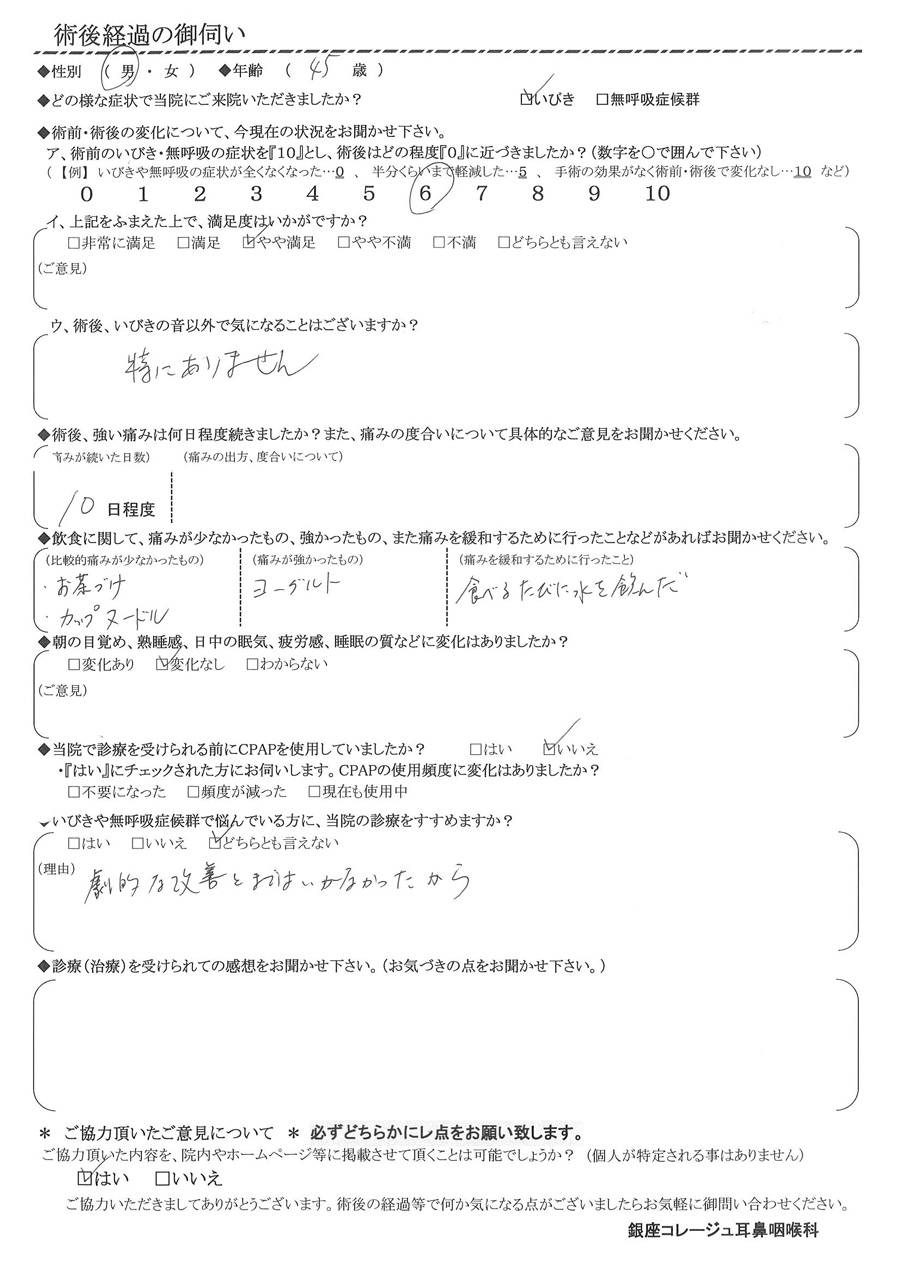 術後経過の御伺い
◆性別 ( 男 ・ 女 ) ◆年齢 ( 45 歳 )
◆どの様な症状で当院にご来院いただきましたか? ☑いびき □無呼吸症候群
◆術前・術後の変化について、今現在の状況をお聞かせ下さい。
ア、術前のいびき・無呼吸の症状を『10』とし、術後はどの程度『0』に近づきましたか?(数字を〇で囲んで下さい)
(【例】いびきや無呼吸の症状が全くなくなった…0 、 半分くらいまで軽減した…5 、 手術の効果がなく術前・術後で変化なし…10 など)
0 1 2 3 4 5 6 7 8 9 10
イ、上記をふまえた上で、満足度はいかがですか?
□非常に満足 □満足 ☑やや満足 □やや不満 □不満 □どちらとも言えない
(ご意見)
ウ、術後、いびきの音以外で気になることはございますか?
特にありません
◆術後、強い痛みは何日程度続きましたか?また、痛みの度合いについて具体的なご意見をお聞かせください。
痛みが続いた日数) (痛みの出方、度合いについて)
10 日程度
◆飲食に関して、痛みが少なかったもの、強かったもの、また痛みを緩和するために行ったことなどがあればお聞かせください。
(比較的痛みが少なかったもの) (痛みが強かったもの) (痛みを緩和するために行ったこと)
・お茶づけ ヨーグルト 食べるたびに水を飲んだ
・カップヌードル
◆朝の目覚め、熟睡感、日中の眠気、疲労感、睡眠の質などに変化はありましたか?
□変化あり ☑変化なし □わからない
(ご意見)
◆当院で診療を受けられる前にCPAPを使用していましたか? □はい ☑いいえ
・『はい』にチェックされた方にお伺いします。CPAPの使用頻度に変化はありましたか?
□不要になった □頻度が減った □現在も使用中
いびきや無呼吸症候群で悩んでいる方に、当院の診療をすすめますか?
□はい □いいえ ☑どちらとも言えない
(理由) 劇的な改善とまではいかなかったから
◆診療(治療)を受けられての感想をお聞かせ下さい。(お気づきの点をお聞かせ下さい。)
* ご協力頂いたご意見について * 必ずどちらかにレ点をお願い致します。
ご協力頂いた内容を、院内やホームページ等に掲載させて頂くことは可能でしょうか? (個人が特定される事はありません)
☑はい □いいえ
ご協力いただきましてありがとうございます。術後の経過等で何か気になる点がございましたらお気軽に御問い合わせください。
銀座コレージュ耳鼻咽喉科